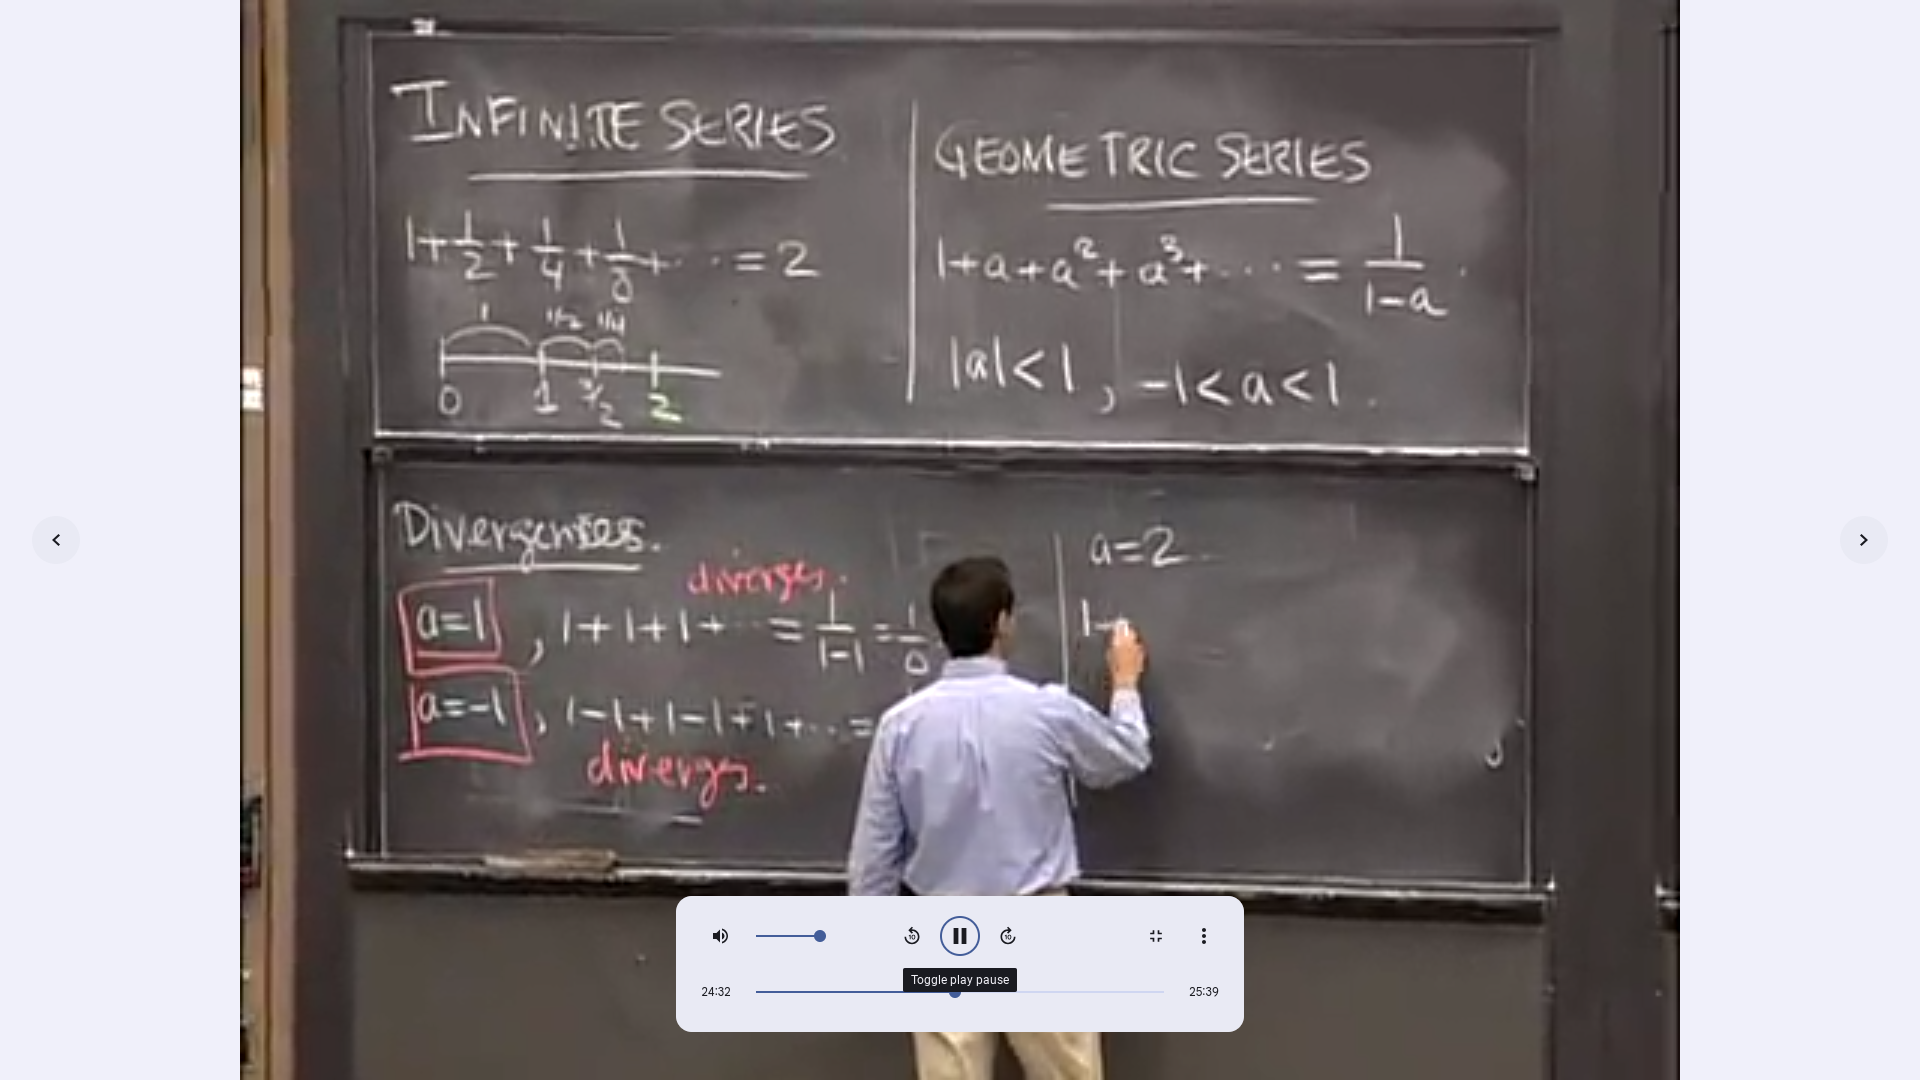 INFINITE SERIES
1 + 1/2 + 1/4 + 1/8 + ⋯ = 2
1 1/2 1/4
0 1 3/2 2
GEOMETRIC SERIES
1 + a + a² + a³ + ⋯ = 1/(1-a).
|a| < 1, -1 < a < 1.
Divergences.
diverges.
a=1, 1+1+1+⋯ = 1/(1-1) = 1/0
a=-1, 1-1+1-1+1+⋯ =
diverges.
a=2
1+
Toggle play pause
24:32
25:39